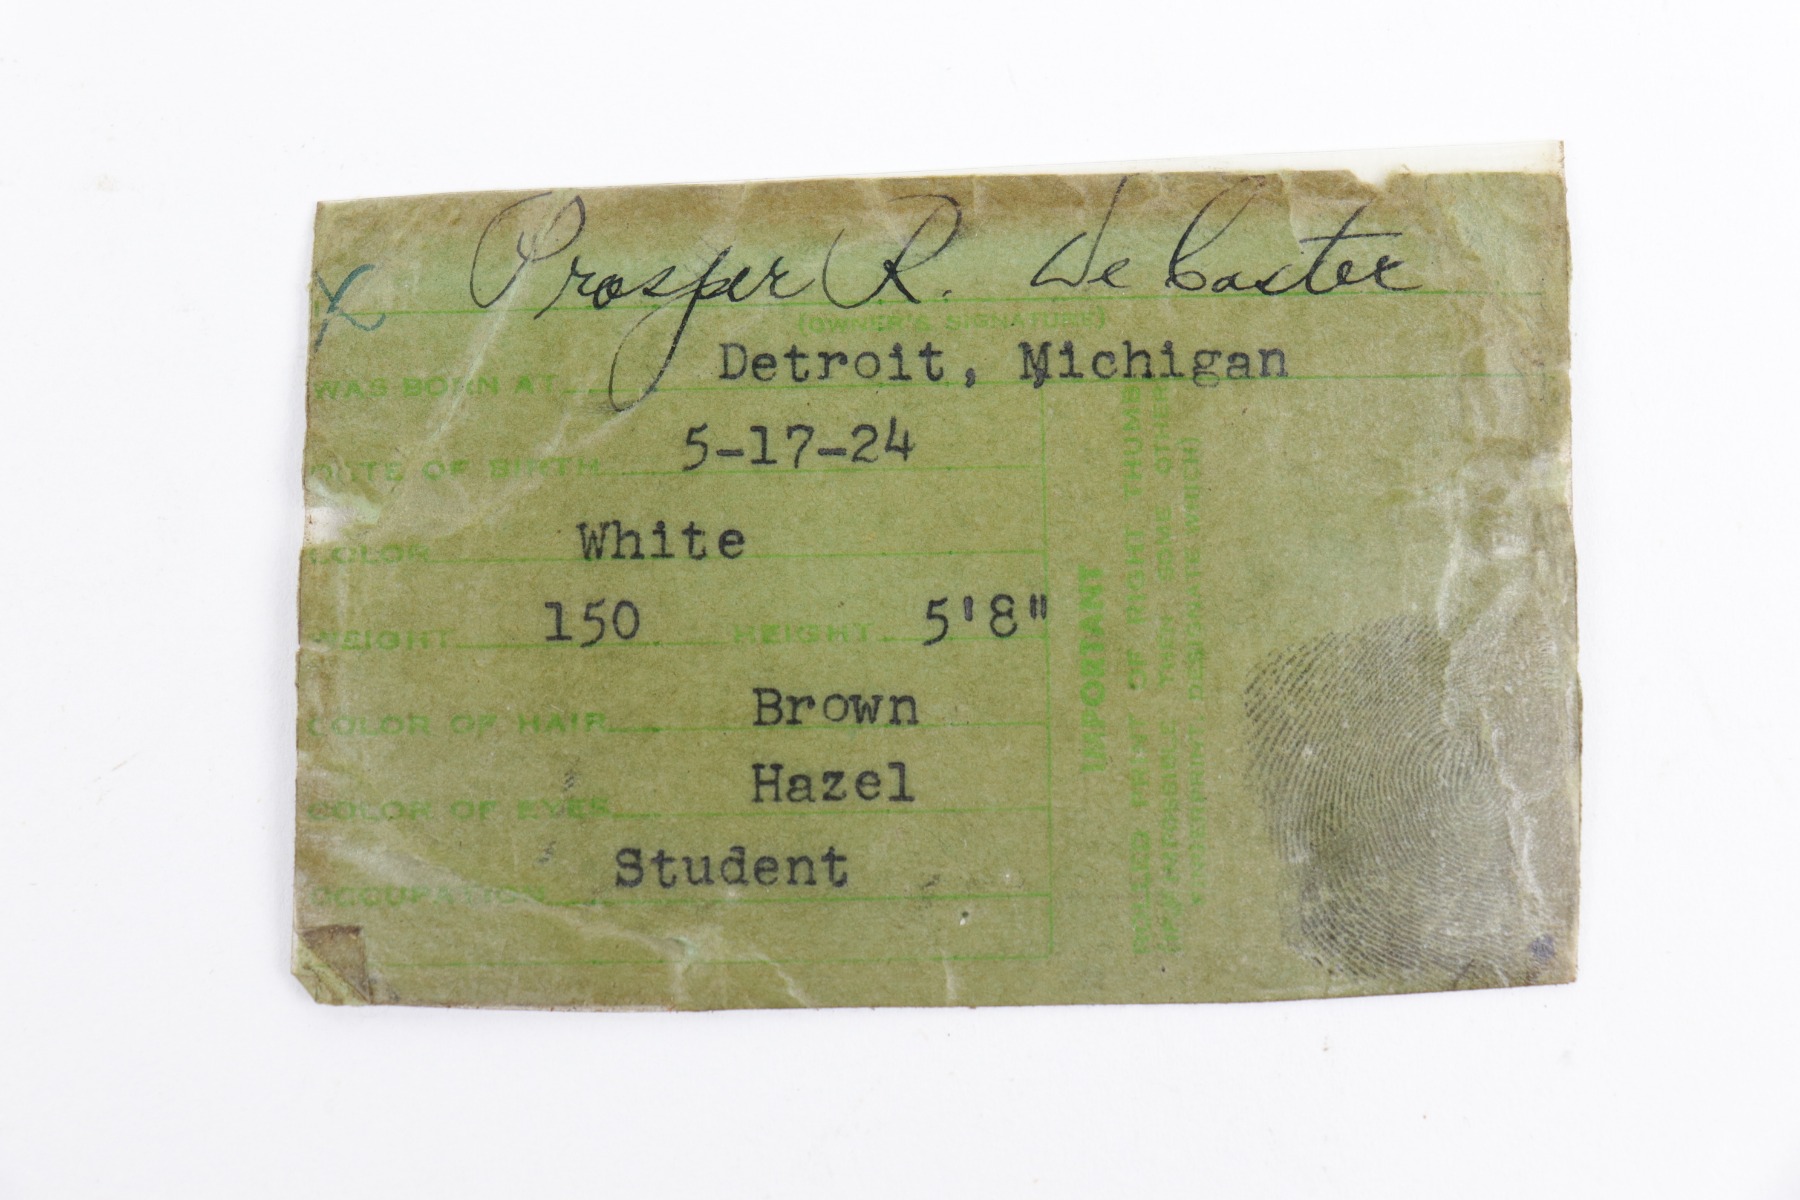 X Prosper R. De Caster
(OWNER'S SIGNATURE)
WAS BORN AT Detroit, Michigan
DATE OF BIRTH 5-17-24
COLOR White
WEIGHT 150 HEIGHT 5'8"
COLOR OF HAIR Brown
COLOR OF EYES Hazel
OCCUPATION Student
IMPORTANT
ROLLED PRINT OF RIGHT THUMB
(IF IMPOSSIBLE THEN SOME OTHER
FINGERPRINT, DESIGNATE WHICH)